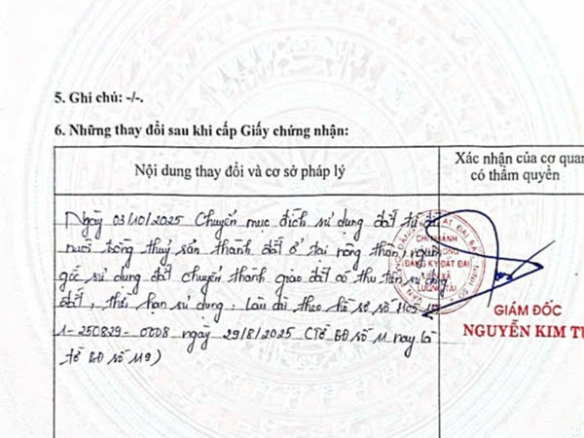 5. Ghi chú: -/-.
6. Những thay đổi sau khi cấp Giấy chứng nhận:
Nội dung thay đổi và cơ sở pháp lý
Xác nhận của cơ quan
có thẩm quyền
Ngày 03/10/2025 Chuyển mục đích sử dụng đất từ đất
nuôi trồng thuỷ sản thành đất ở tại nông thôn, nguồn
gốc sử dụng đất chuyển thành giao đất có thu tiền sử dụng
đất, thời hạn sử dụng: Lâu dài theo hồ sơ số
1-250829-0008 ngày 29/8/2025 (Tờ BĐ số 11 nay là
tờ BĐ số 119)
CHI NHÁNH
ĐĂNG KÝ ĐẤT ĐAI
GIÁM ĐỐC
NGUYỄN KIM TU